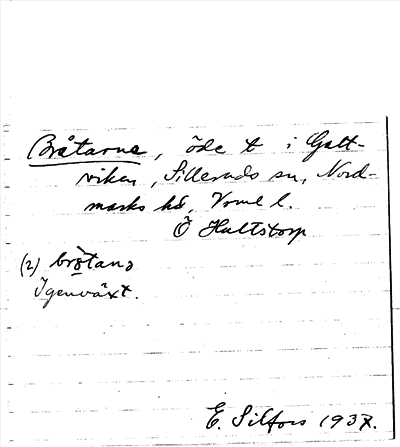 Bråtarna, öde t i Gatt-
viken, Silleruds sn, Nord-
marks hd, Vrml l.
Ö Hultstorp
(2) brötana
Igenväxt.
E. Silfors 1937.